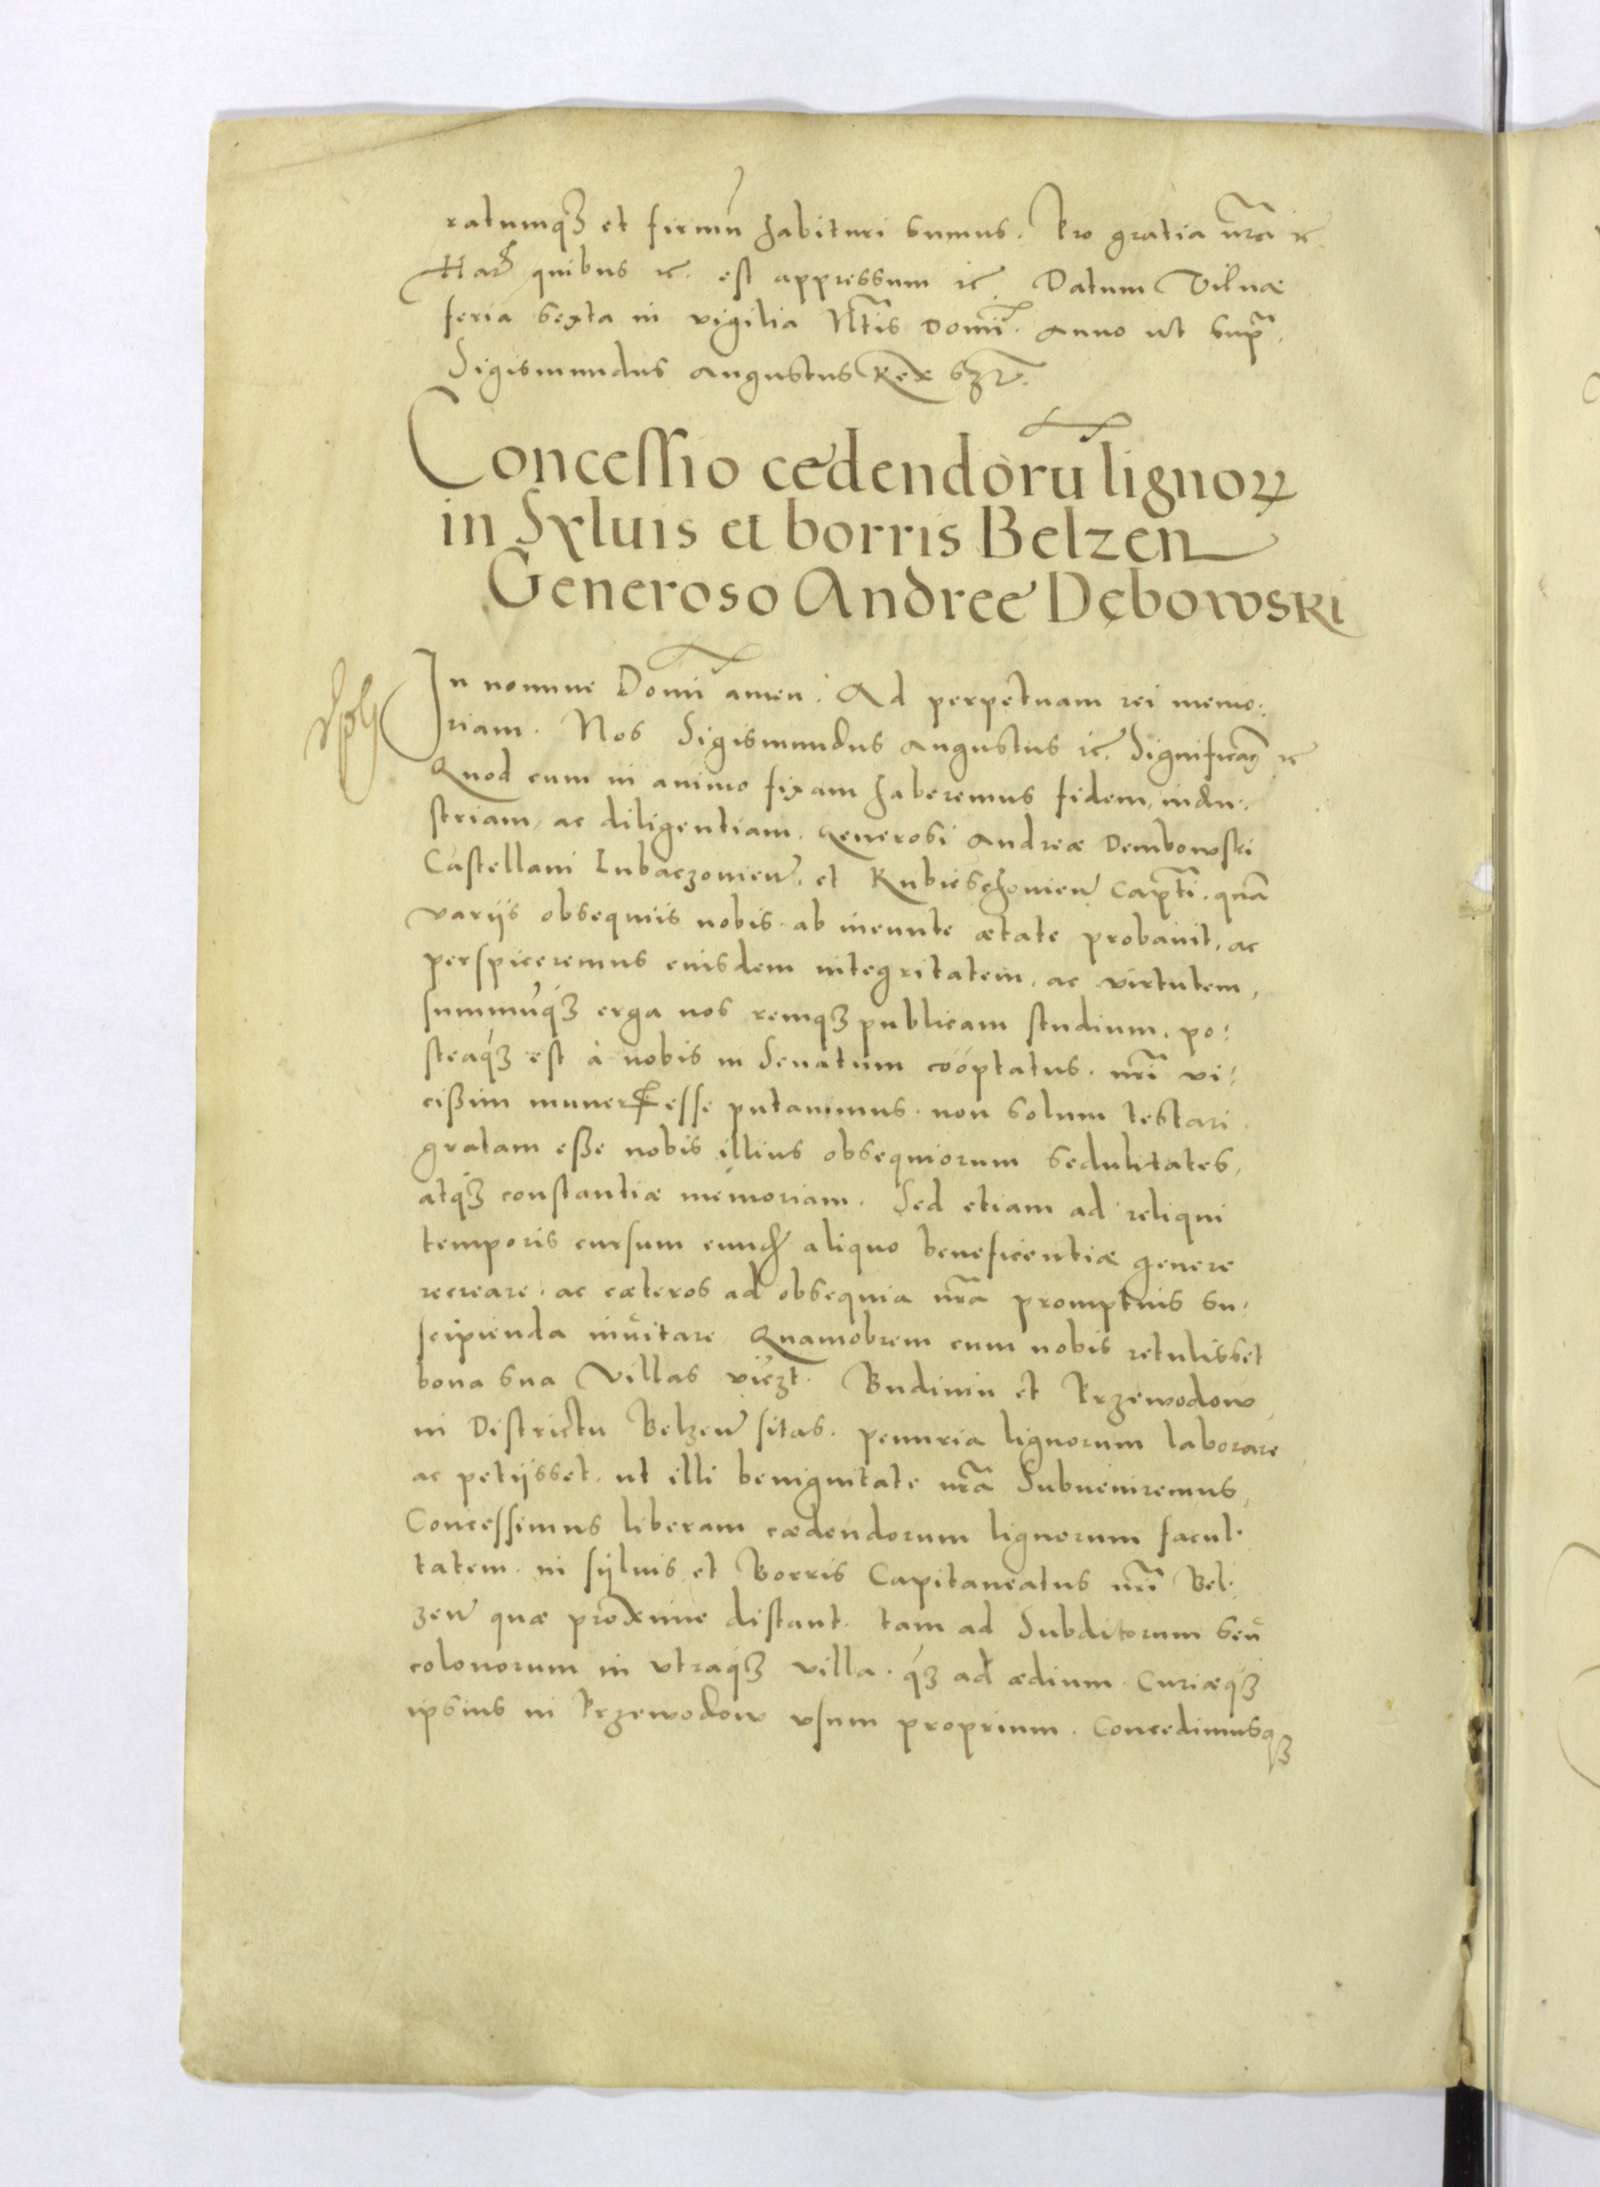 ratumqȝ et firmũ habituri sumus. Pro gratia nr̃a ꝛc.
Har̃ quibus ꝛc. est appressum ꝛc. Datum Vilnæ
feria sexta in vigilia Nt̃is Domĩ. Anno ut supr̃.
Sigismundus Augustus Rex sszt.
Concessio cedendorũ lignoꝝ
in Syluis et borris Belzen
Generoso Andree Dębowski
In nomine Domĩ amen. Ad perpetuam rei memo:
riam. Nos Sigismundus Augustus ꝛc. Significam̃ ꝛc
Quod cum in animo fixam haberemus fidem, indu:
striam, ac diligentiam. Generosi Andreæ Dembowski
Castellani Lubaczovien̄. et Rubieschovien̄ Capt̃i. quã
variis obsequiis nobis ab ineunte ætate probauit, ac
perspiceremus eiusdem integritatem, ac virtutem,
summũqȝ erga nos remqȝ publicam studium. po:
steaqȝ est à nobis in Senatum cooptatus. nr̃i vi:
cißim muneris esse putauimus. non solum testari
gratam eße nobis illius obsequiorum sedulitates,
atqȝ constantiæ memoriam. Sed etiam ad reliqui
temporis cursum eundẽ aliquo beneficentiæ genere
recreare. ac cæteros ad obsequia nr̃a promptius su:
scipienda inuitare Quamobrem cum nobis retulisset
bona sua Villas vicꝫt. Budinin et Przewodow
in Districtu Belzen̄ sitas. penuria lignorum laborare
ac petijsset. ut illi benignitate nr̃a Subueniremus,
Concessimus liberam cædendorum lignorum facul:
tatem. in syluis et Borris Capitaneatus nr̃i Bel:
zen̄ quæ proxime distant. tam ad Subditorum seu
colonorum in vtraqȝ villa. qȝ ad ædium Curiæqȝ
ipsius in Przewodow vsum proprium. Concedimusqȝ